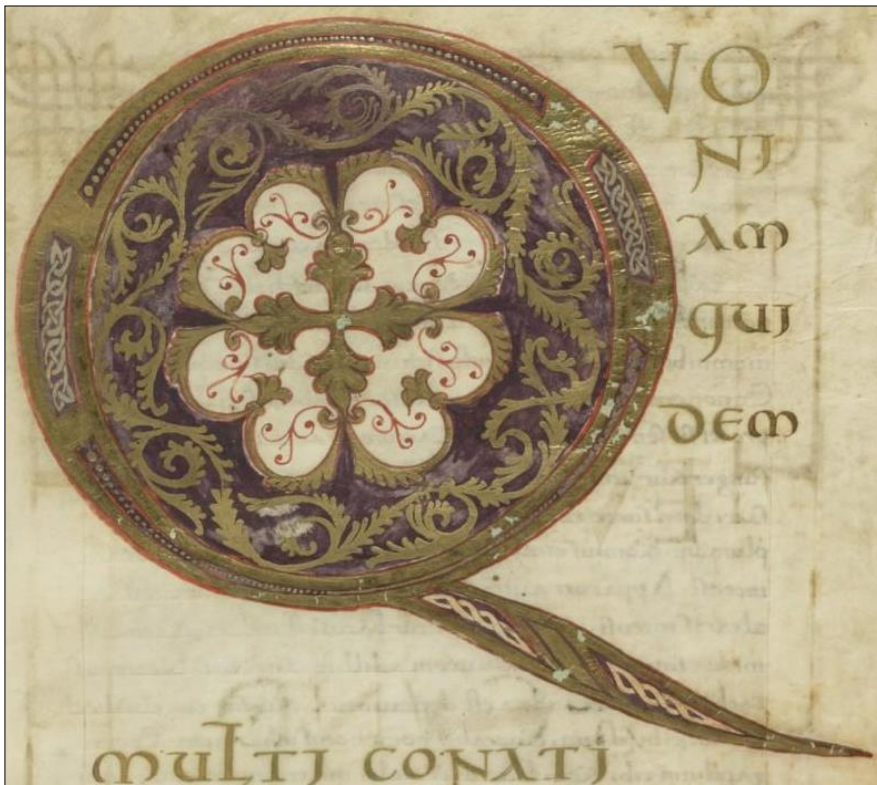 Q
VO
NI
AM
QUI
DEM
MULTI CONATI